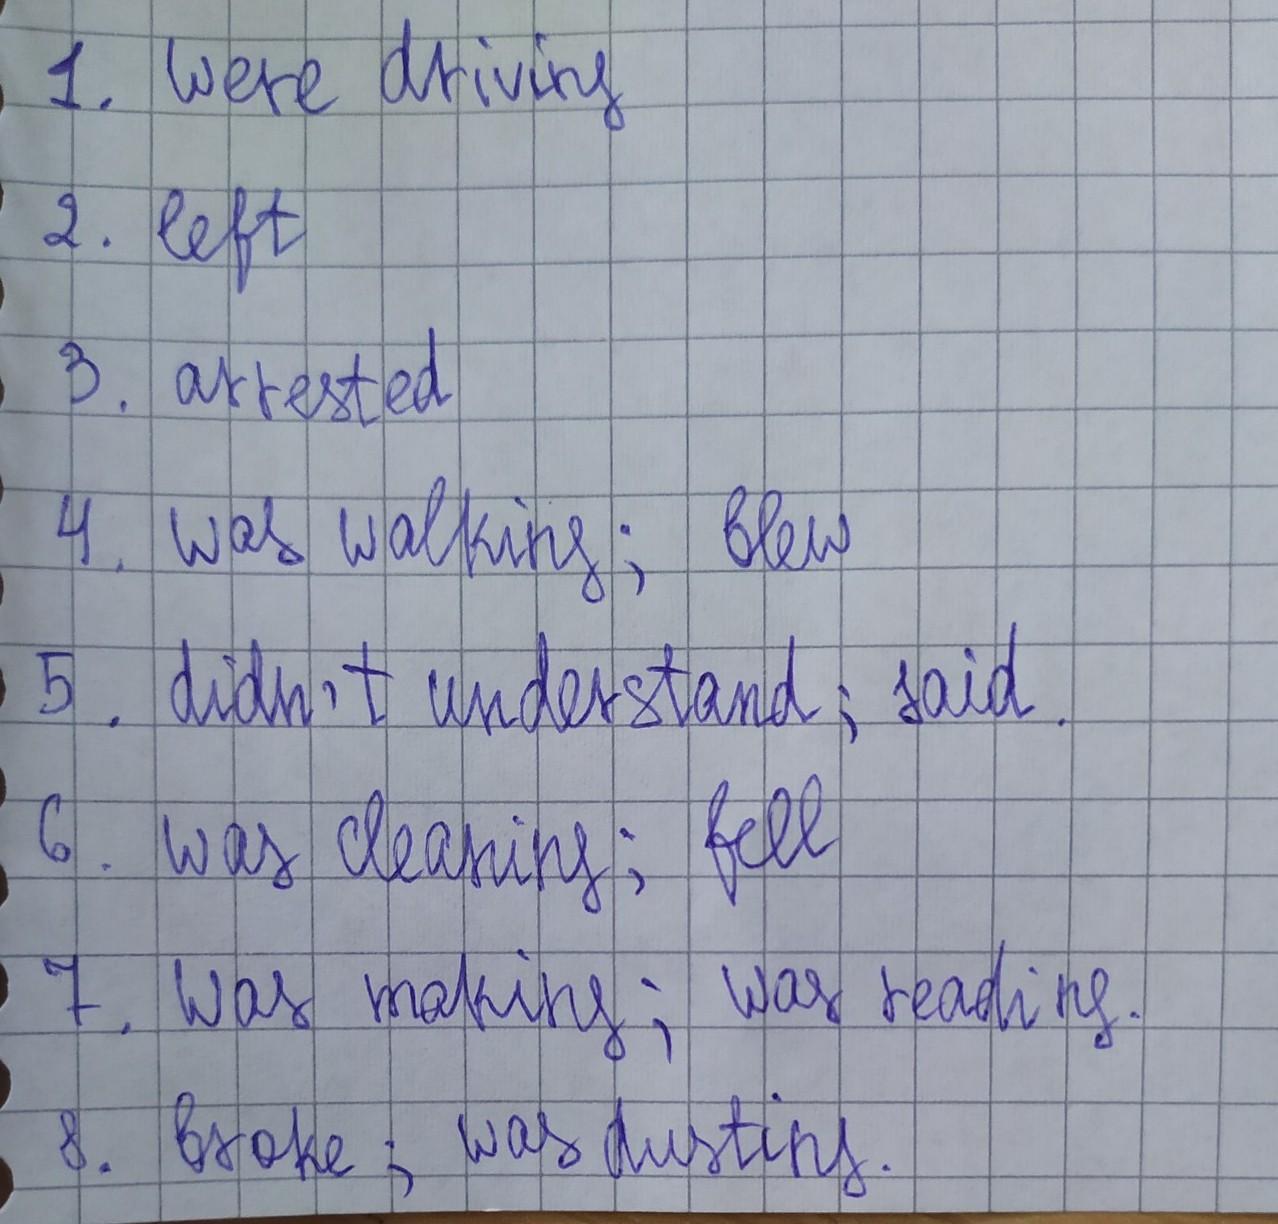 1. were driving
2. left
3. arrested
4. was walking; blew
5. didn't understand; said.
6. was cleaning; fell
7. was making; was reading.
8. broke; was dusting.